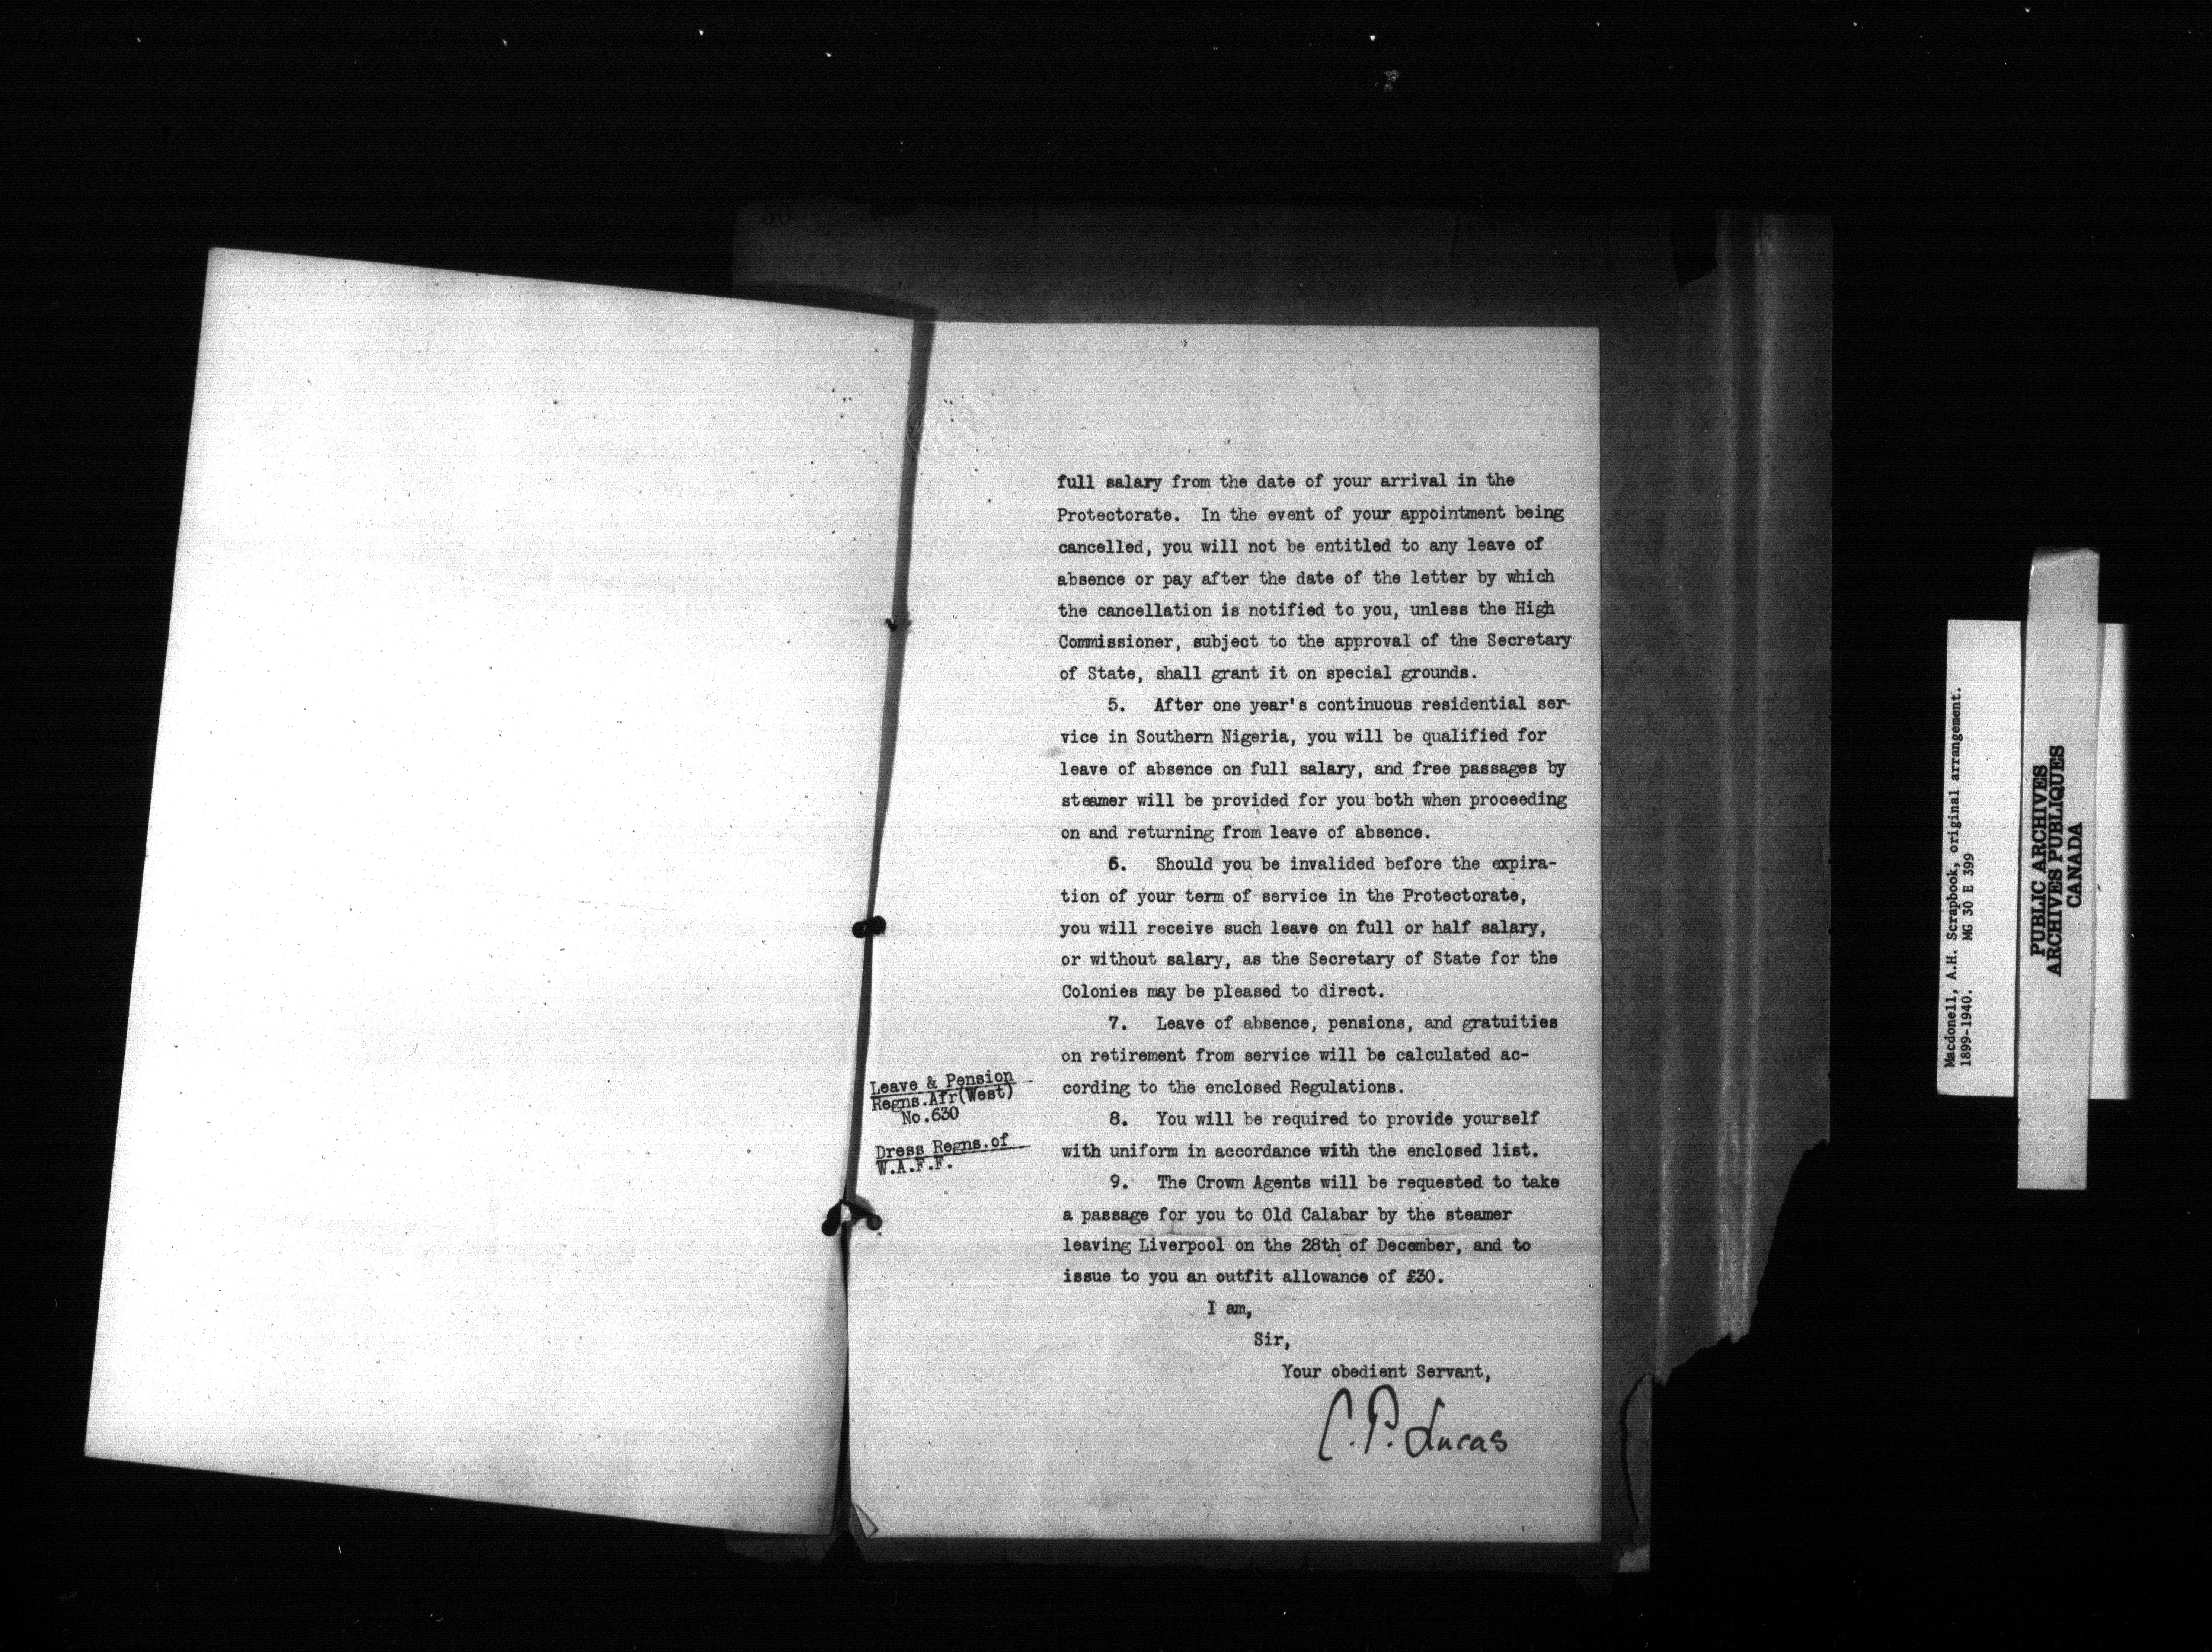 50
full salary from the date of your arrival in the
Protectorate. In the event of your appointment being
cancelled, you will not be entitled to any leave of
absence or pay after the date of the letter by which
the cancellation is notified to you, unless the High
Commissioner, subject to the approval of the Secretary
of State, shall grant it on special grounds.
5. After one year's continuous residential ser-
vice in Southern Nigeria, you will be qualified for
leave of absence on full salary, and free passages by
steamer will be provided for you both when proceeding
on and returning from leave of absence.
6. Should you be invalided before the expira-
tion of your term of service in the Protectorate,
you will receive such leave on full or half salary,
or without salary, as the Secretary of State for the
Colonies may be pleased to direct.
7. Leave of absence, pensions, and gratuities
on retirement from service will be calculated ac-
cording to the enclosed Regulations.
Leave & Pension
Regns.Afr(West)
No.630
8. You will be required to provide yourself
with uniform in accordance with the enclosed list.
Dress Regns.of
W.A.F.F.
9. The Crown Agents will be requested to take
a passage for you to Old Calabar by the steamer
leaving Liverpool on the 28th of December, and to
issue to you an outfit allowance of £30.
I am,
Sir,
Your obedient Servant,
C.P. Lucas
Macdonell, A.H. Scrapbook, original arrangement.
1899-1940. MG 30 E 399
PUBLIC ARCHIVES
ARCHIVES PUBLIQUES
CANADA